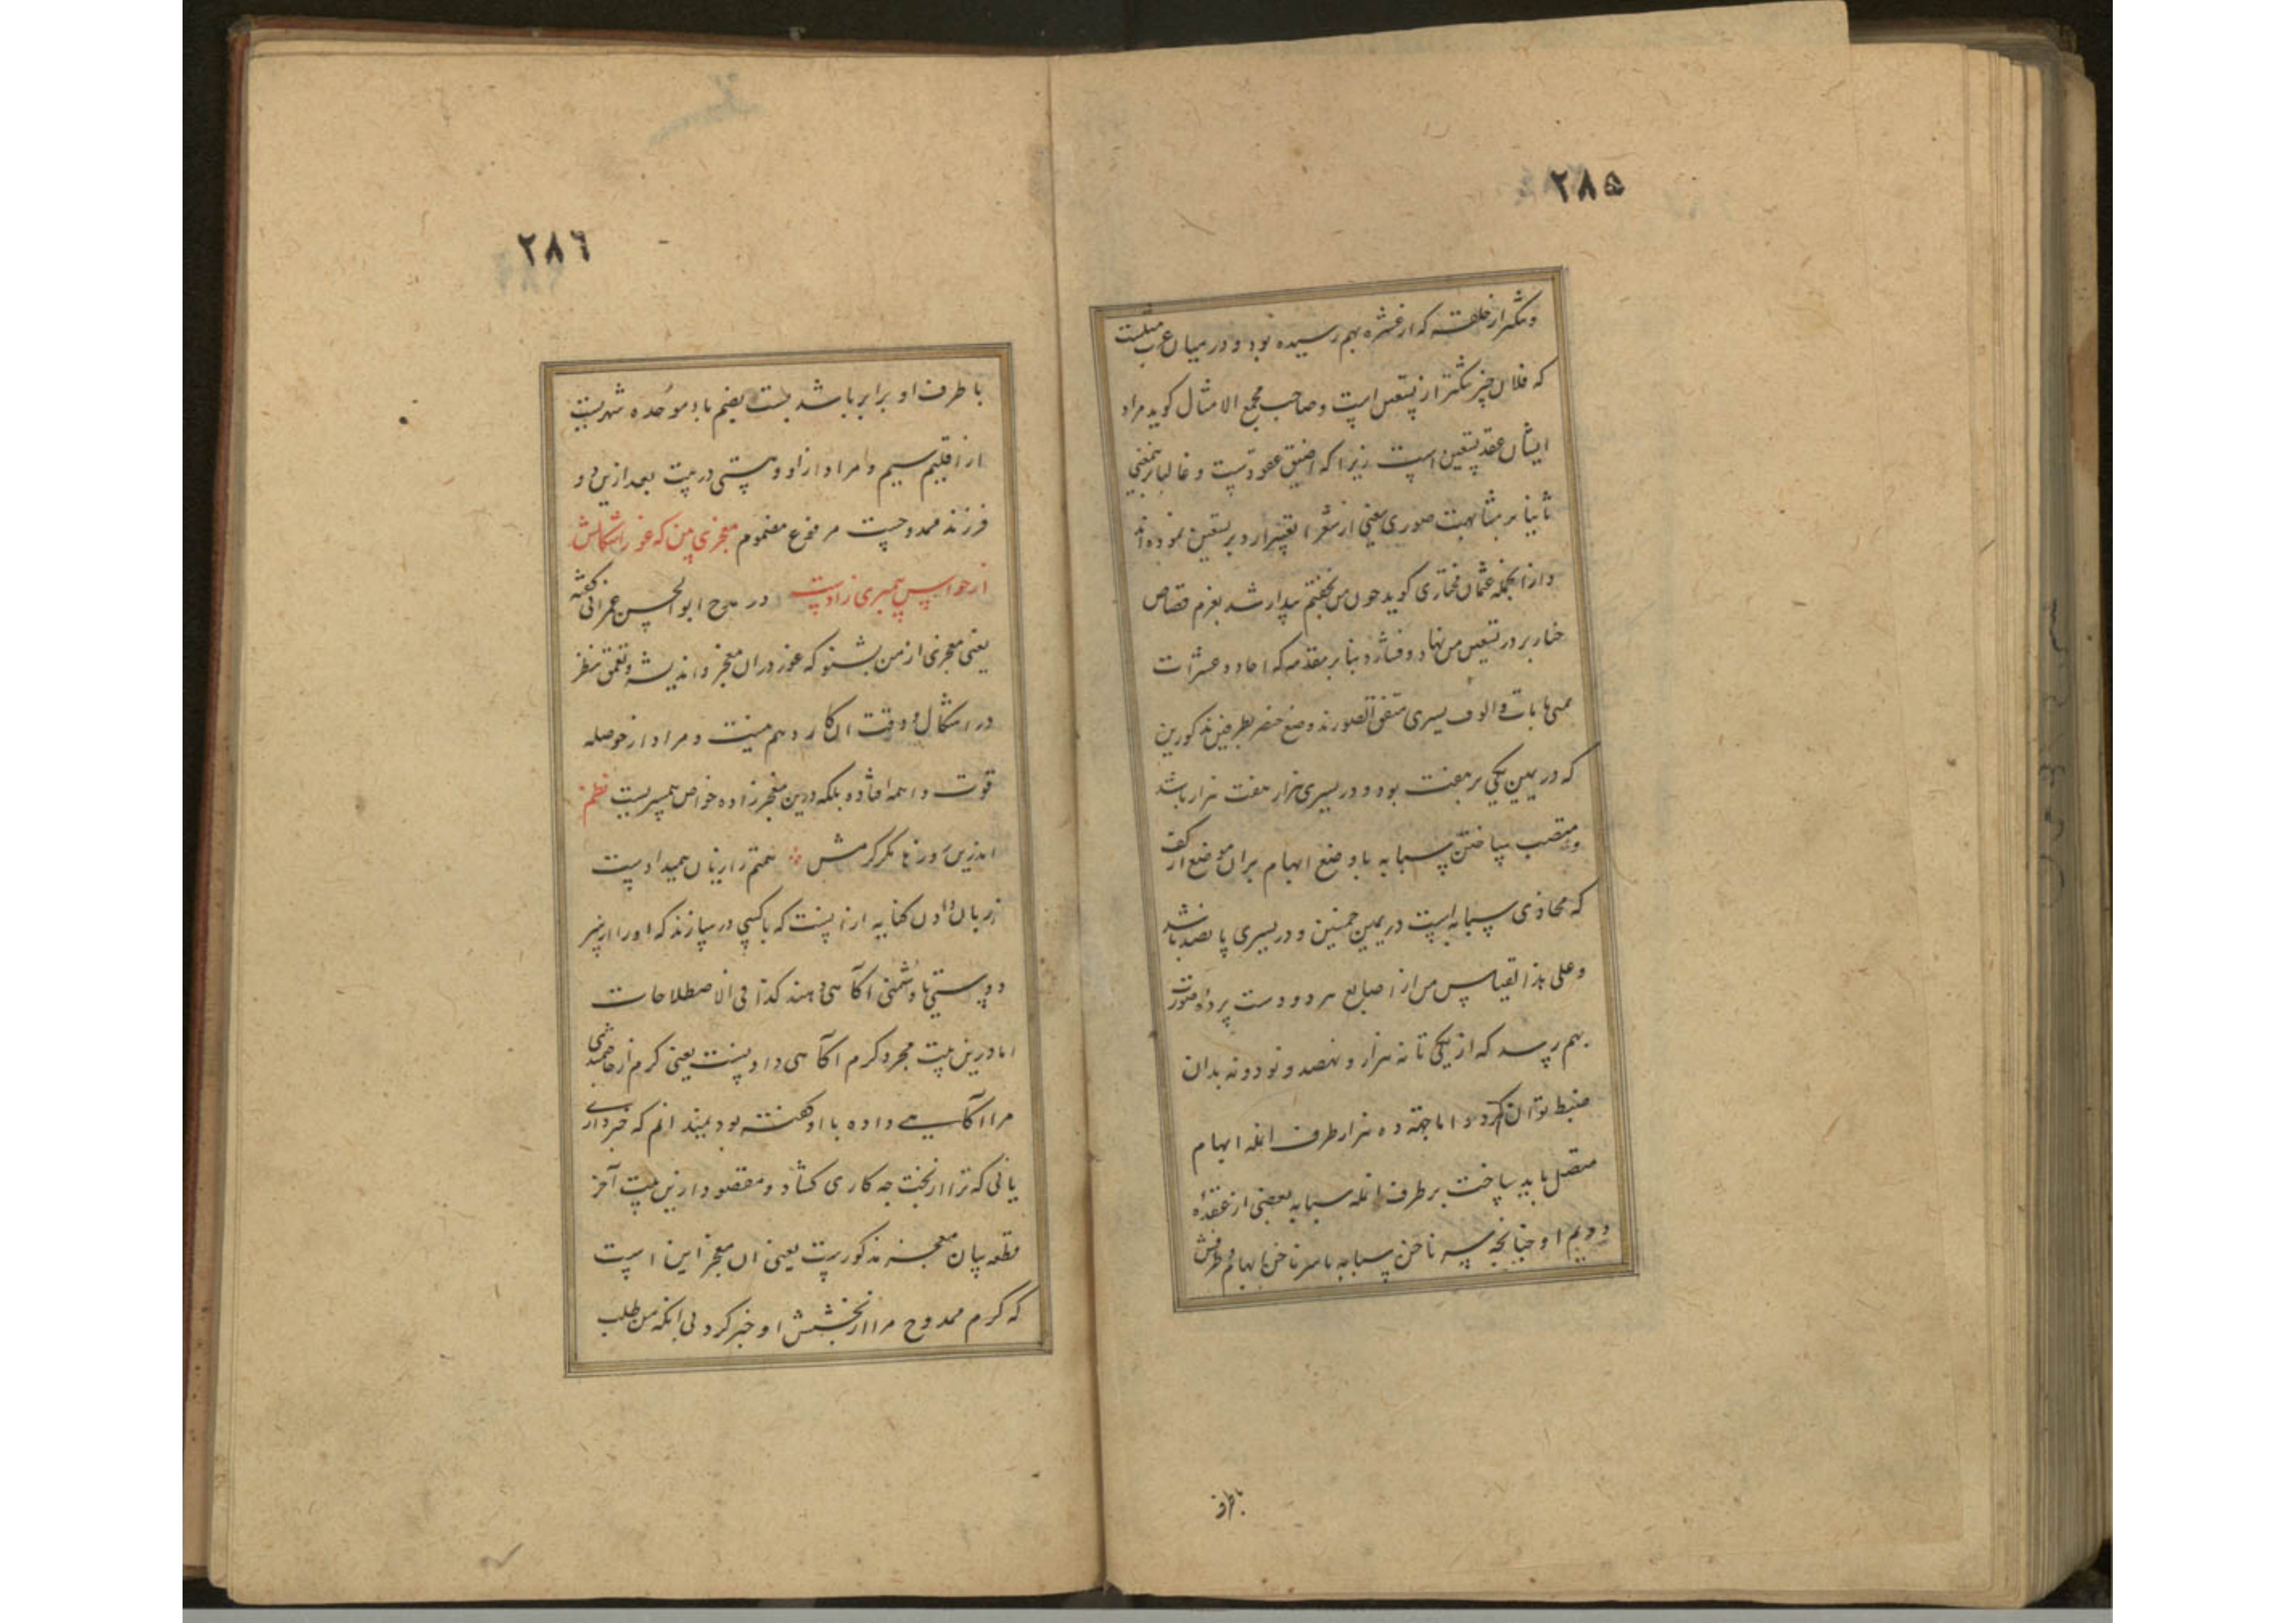 ٢٨٥
که از عشره بهم رسیده بود و در میان عرب
که فلان چیز تنکتر از تسعین است و صاحب مجمع الامثال کوید مراد
ایشان عقد تسعین است زیرا که اضیق عقودست و غالبا
ثانیا بر مشابهت صوری یعنی از شعرا تعبیر از دبر بتسعین نموده‌اند
و از انجمله عثمان مختاری کوید چون من بخفتم بیدار شد بعزم قصاص
تسعین من نهاد و فشارد بنابر مقدمه که احاد و عشرات
یمنی با مآت و الوف یسری متفق الصورند وضع خنصر بطریقین مذکورین
که در یمین یکی بر هفت بود و در یسری هزار هفت هزار باشد
و منتصب ساختن سبابه با وضع ابهام بران موضع از کف
که محاذی سبابه است در یمین خمسین و در یسری پانصد باشد
و علی هذا القیاس پس از اصابع هر دو دست صورت
بهم رسد که از یکی تا نه هزار و نهصد و نود و نه بدان
ضبط توان کرد و اما جهة ده هزار طرف انمله ابهام
متصل باید ساخت بر طرف انمله سبابه بعضی از عقده
دویم او چنانچه سر ناخن سبابه با سر ناخن ابهام و طرفش
باطرف
٢٨٦
با طرف او برابر باشد بست بضم باء موحده شهریست
از اقلیم سیم و مراد از او و هستی در بیت بعد ازین دو
فرزند ممدوحست مرفوع مضموم معجزی بین که غور اشکالش
از حواس پیمبری زادست در مدح ابو الحسن عمرانی کفته
یعنی معجزی از من بشنو که غور دران معجز و اندیشه و تعمق نظر
در اشکال و دقت ان کار وهم نیست و مراد از حوصله
قوت واهمه افتاده بلکه درین معجز زاده خواص پیمبریست نظم
اندرین روزها مکر کرمش همتم را زبان همیدادست
زبان دادن کنایه از انست که با کسی در سازند که او را از سر
دوستی یا دشمنی آکاهی دهند کذا فی الاصطلاحات
اما درین بیت مجرد کرم آکاهی دادنست یعنی کرم از
مرا آکاهی داده با او کفته بود نمیدانم که خبرداری
یا نی که ترا از بخت چه کاری کشاد و مقصود ازین بیت آخر
قطعه بیان معجزه مذکورست یعنی ان معجز این است
که کرم ممدوح مرا از بخشش او خبر کرد بی انکه من طلب